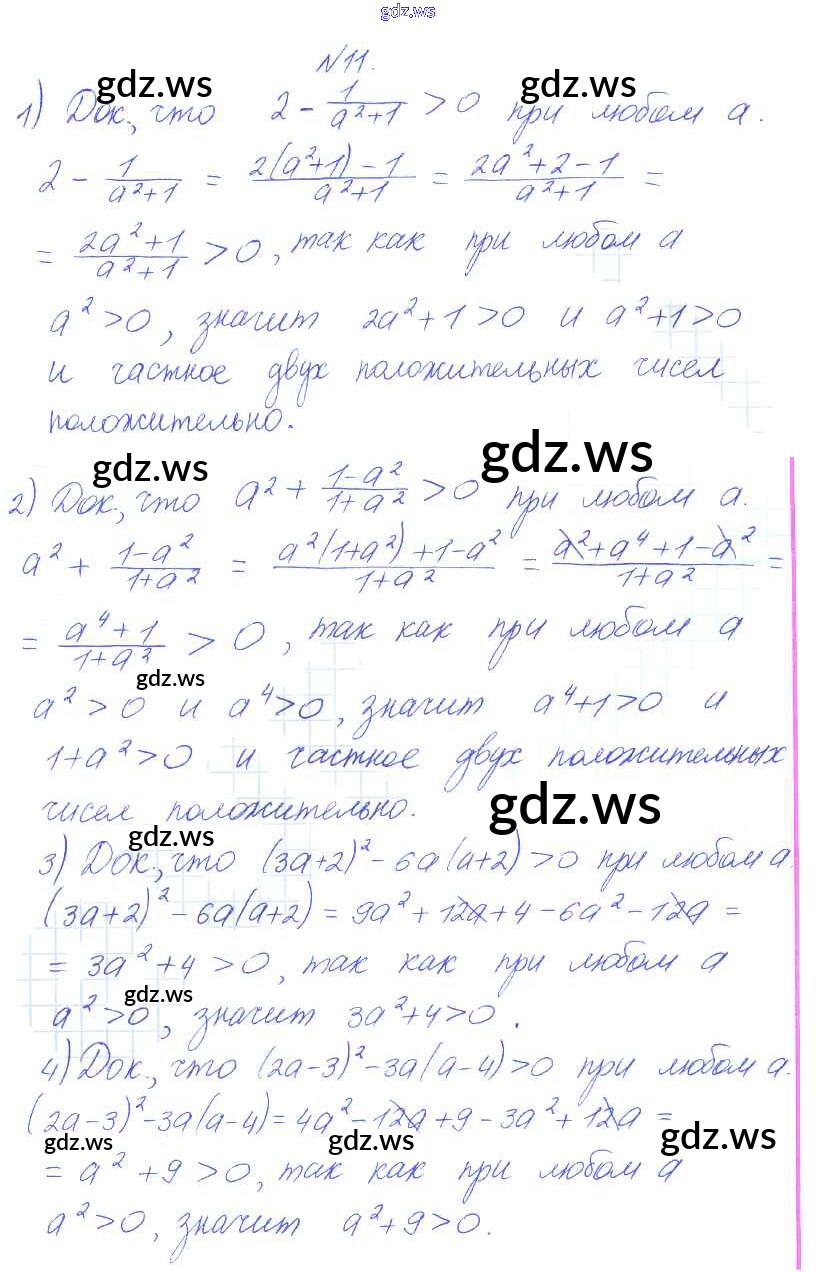 gdz.ws
N11.
gdz.ws gdz.ws
1) Док., что 2 - 1/(a²+1) > 0 при любом a.
2 - 1/(a²+1) = (2(a²+1) - 1)/(a²+1) = (2a²+2-1)/(a²+1) =
= (2a²+1)/(a²+1) > 0, так как при любом a
a² > 0, значит 2a²+1 > 0 и a²+1 > 0
и частное двух положительных чисел
положительно.
gdz.ws gdz.ws
2) Док., что a² + (1-a²)/(1+a²) > 0 при любом a.
a² + (1-a²)/(1+a²) = (a²(1+a²)+1-a²)/(1+a²) = (a²+a⁴+1-a²)/(1+a²) =
= (a⁴+1)/(1+a²) > 0, так как при любом a
gdz.ws
a² > 0 и a⁴ > 0, значит a⁴+1 > 0 и
1+a² > 0 и частное двух положительных
чисел положительно.
gdz.ws
gdz.ws
3) Док., что (3a+2)² - 6a(a+2) > 0 при любом a.
(3a+2)² - 6a(a+2) = 9a² + 12a + 4 - 6a² - 12a =
= 3a² + 4 > 0, так как при любом a
gdz.ws
a² > 0, значит 3a²+4 > 0.
4) Док., что (2a-3)² - 3a(a-4) > 0 при любом a.
(2a-3)² - 3a(a-4) = 4a² - 12a + 9 - 3a² + 12a =
gdz.ws gdz.ws gdz.ws
= a² + 9 > 0, так как при любом a
a² > 0, значит a²+9 > 0.